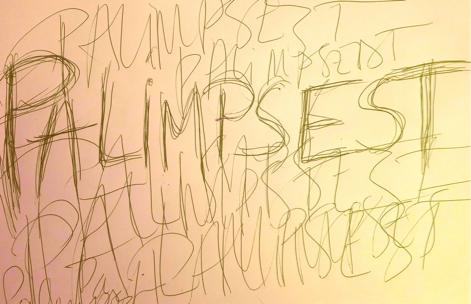 PALIMPSEST
PALIMPSEST
PALIMPSEST
PALIMPSEST
PALIMPSEST